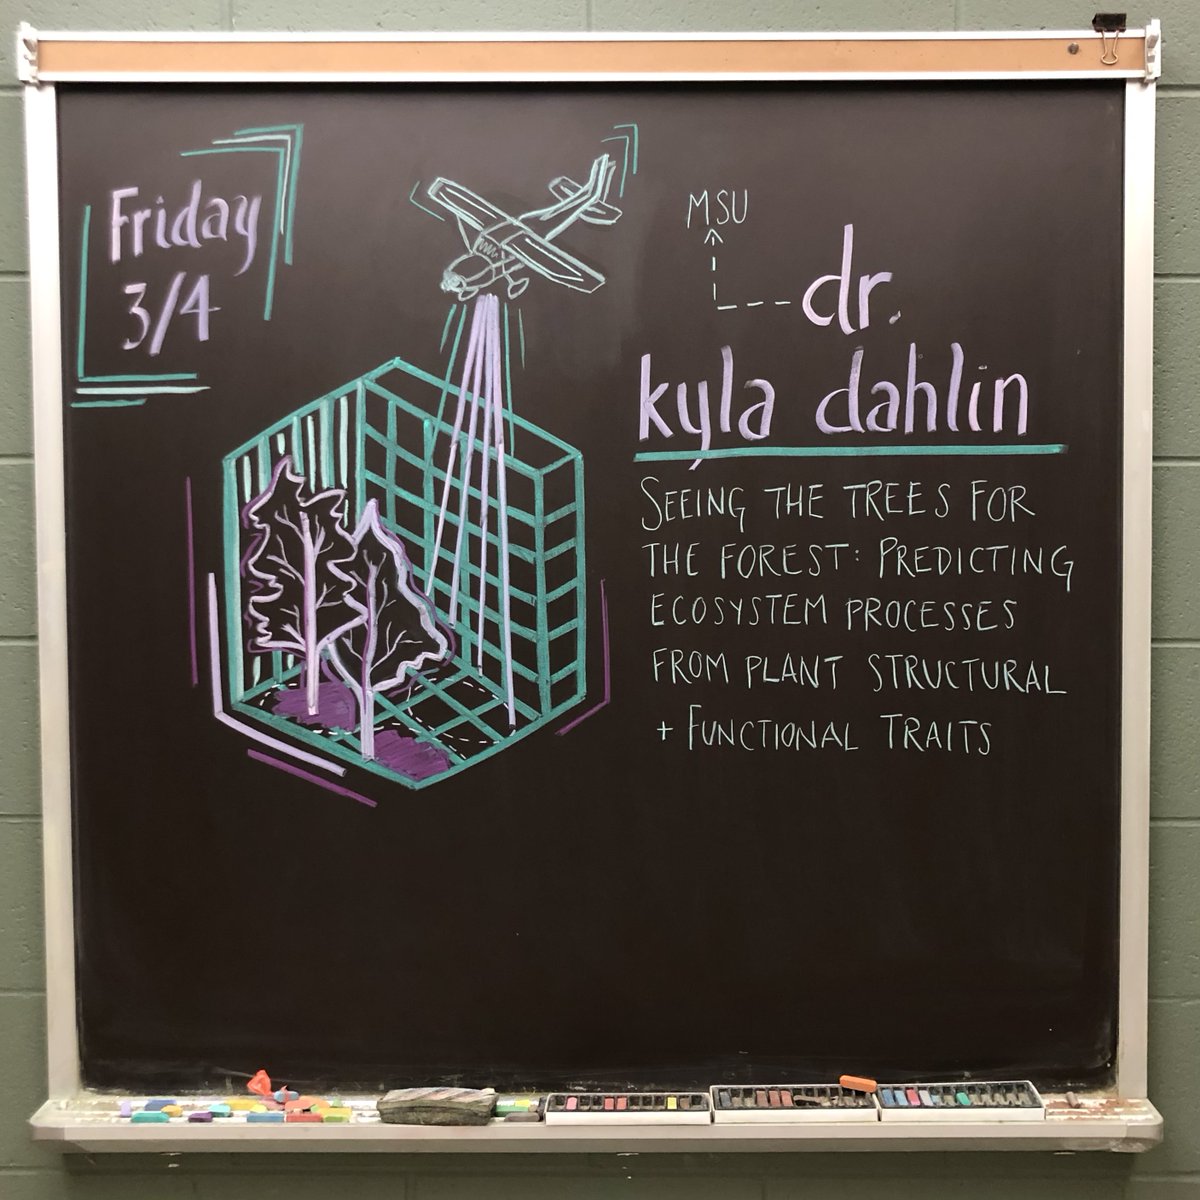 Friday
3/4
MSU
dr.
kyla dahlin
SEEING THE TREES FOR
THE FOREST: PREDICTING
ECOSYSTEM PROCESSES
FROM PLANT STRUCTURAL
+ FUNCTIONAL TRAITS